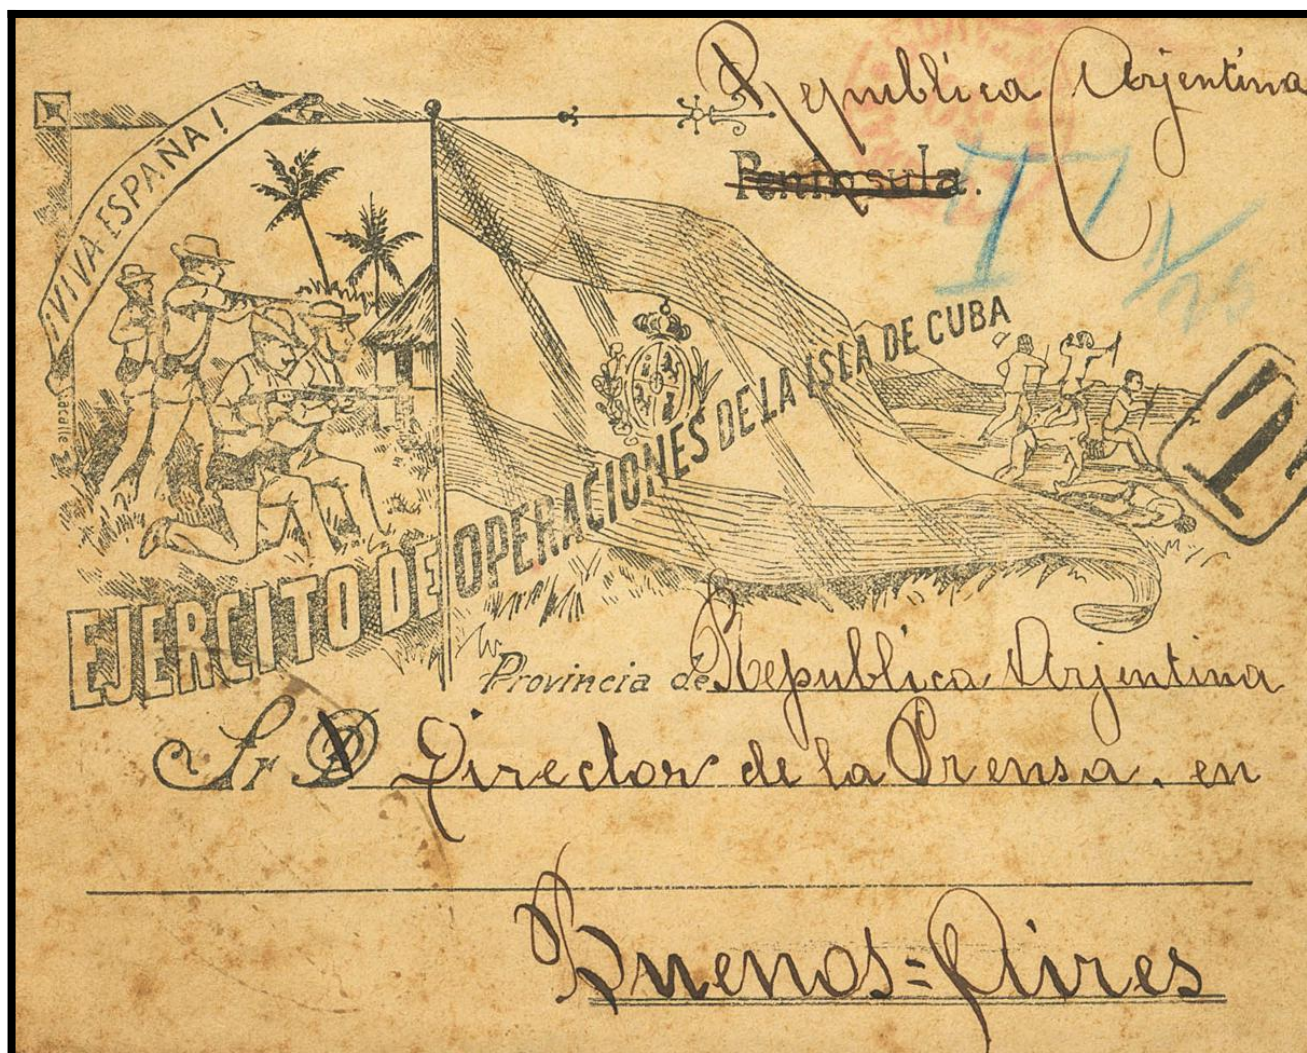 Republica Arjentina
Peninsula.
¡VIVA ESPAÑA!
EJERCITO DE OPERACIONES DE LA ISLA DE CUBA
T
Provincia de Republica Arjentina
Sr D Director de la Prensa, en
Buenos=Aires